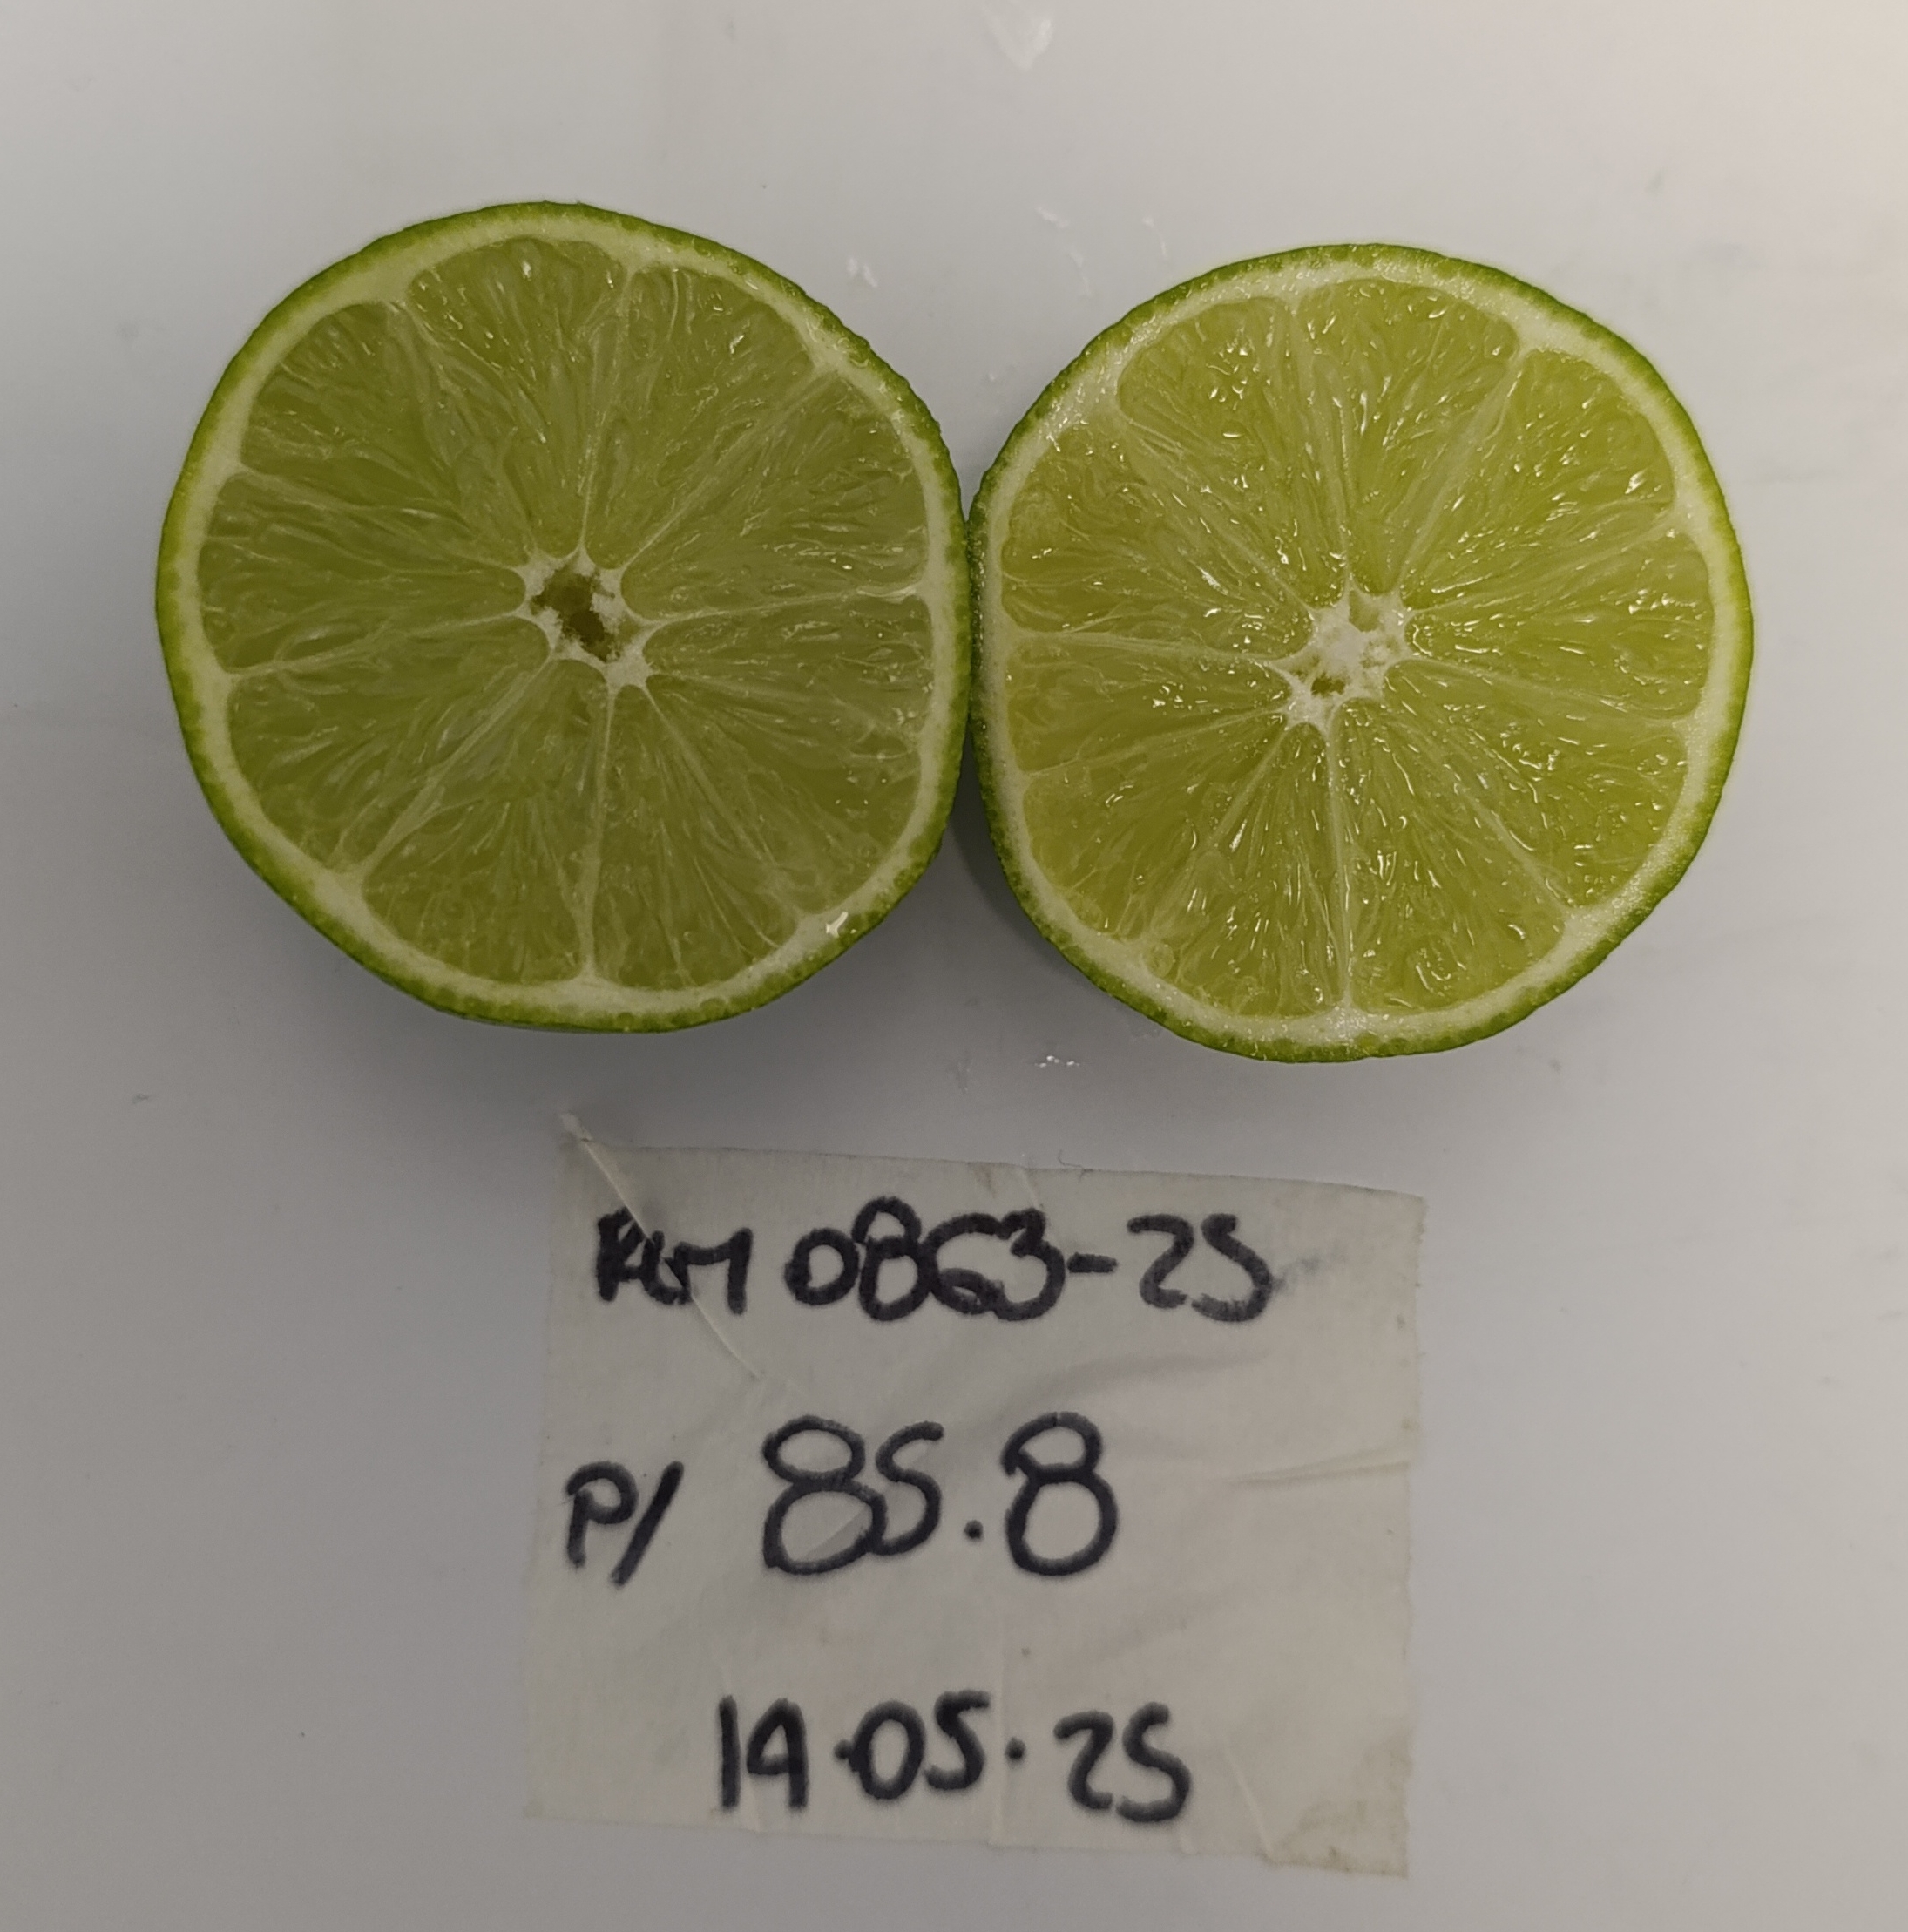 RLM 0863-25
P/ 85.8
14.05.25